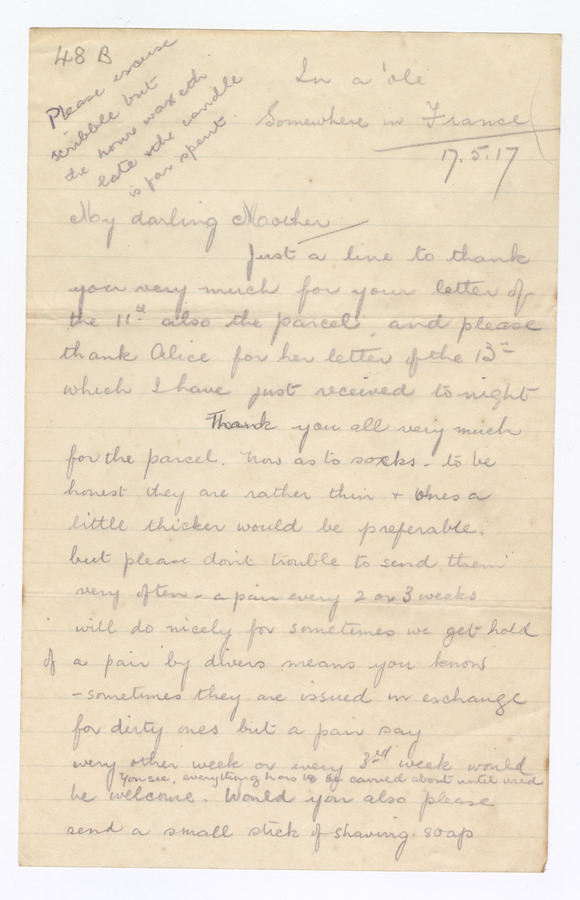 48 B
Please excuse
scribble but
the hour waxeth
late & the candle
is far spent.
In a 'ole
Somewhere in France
17.5.17
My darling Mother
Just a line to thank
you very much for your letter of
the 11th also the parcel, and please
thank Alice for her letter of the 13th
which I have just received to night
Thank you all very much
for the parcel. Now as to socks - to be
honest they are rather thin & ones a
little thicker would be preferable.
but please don't trouble to send them
very often - a pair every 2 or 3 weeks
will do nicely for sometimes we get hold
of a pair by divers means you know
- sometimes they are issued in exchange
for dirty ones but a pair say
every other week or every 3rd week would
You see, everything has to be carried about until used
be welcome. Would you also please
send a small stick of shaving soap